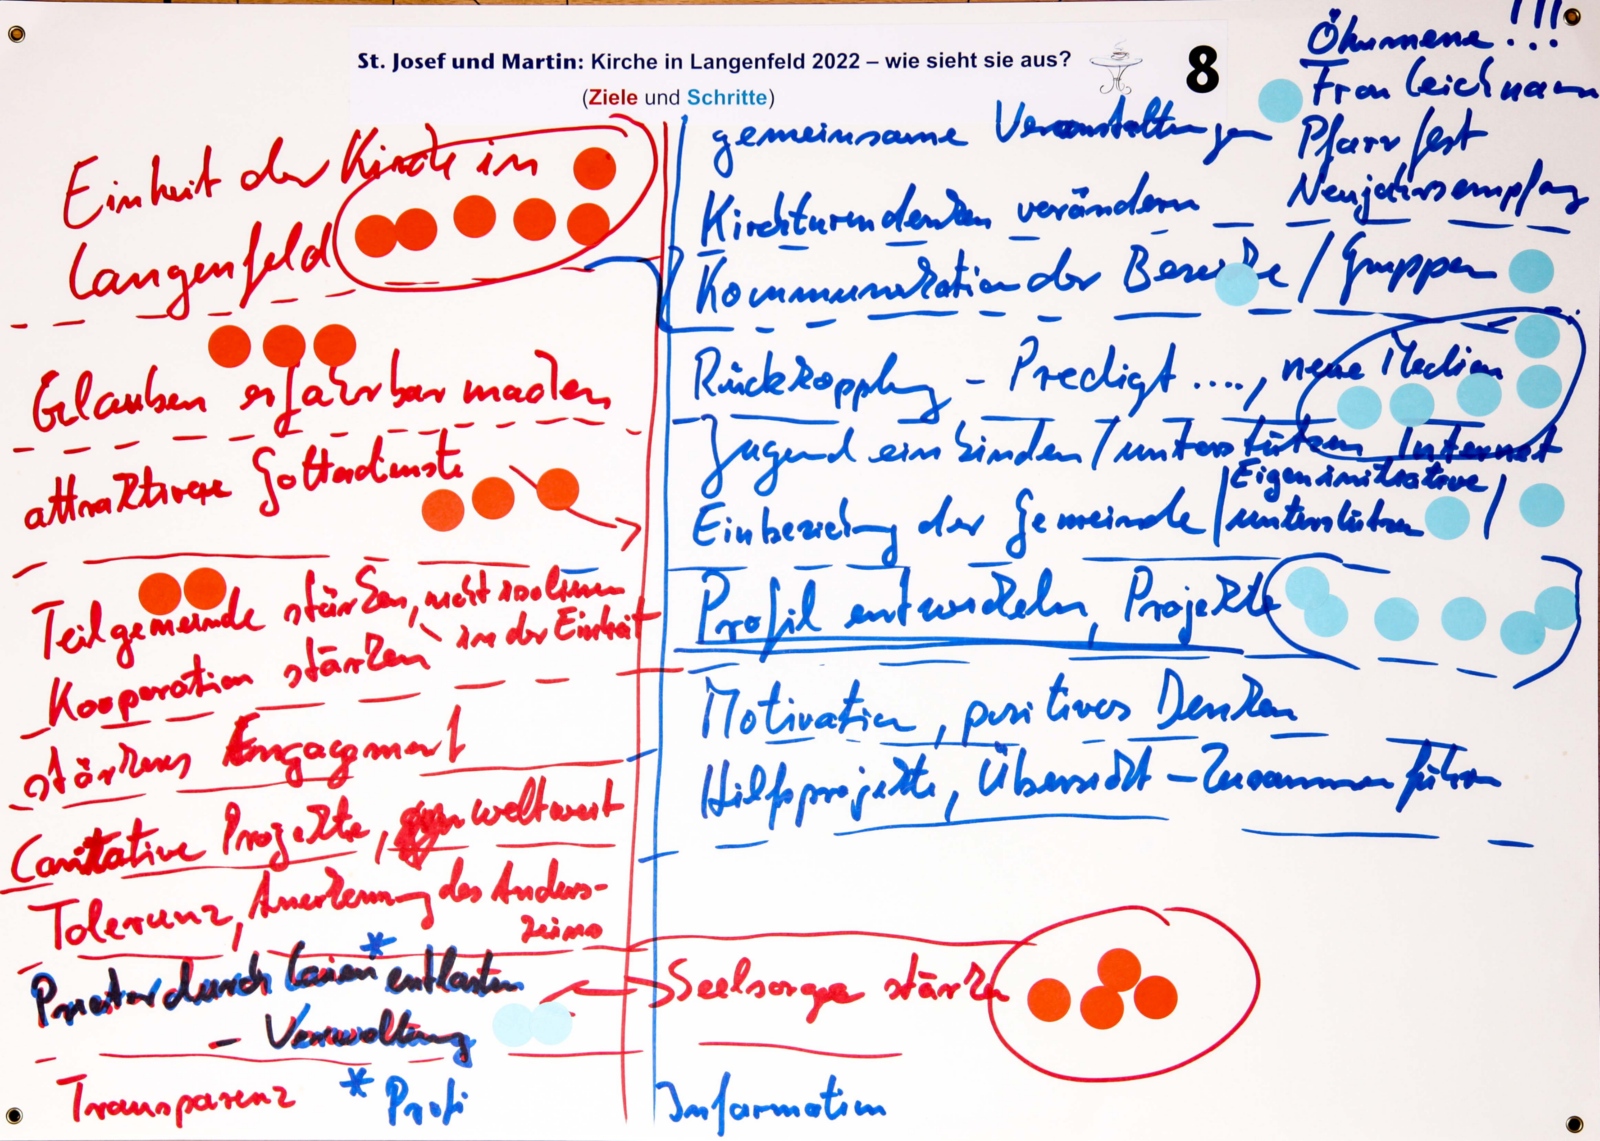 St. Josef und Martin: Kirche in Langenfeld 2022 – wie sieht sie aus?
(Ziele und Schritte)
8
Ökumene !!!
Fronleichnam
Pfarrfest
Neujahrsempfang
Einheit der Kirche in
Langenfeld
Glauben erfahrbar machen
attraktivere Gottesdienste
Teilgemeinde stärken, nicht isolieren
in der Einheit
Kooperation stärken
stärkeres Engagement
Caritative Projekte, weltweit
Toleranz, Anerkennung des Anders-
seins
Priester durch Laien* entlasten
– Verwaltung
Transparenz
* Profi
gemeinsame Veranstaltungen
Kirchturmdenken verändern
Kommunikation der Bereiche / Gruppen
Rückkopplung – Predigt ...., neue Medien
Jugend einbinden / unterstützen Internet
Einbeziehung der Gemeinde / Eigeninitiative /
unterstützen
Profil entwickeln, Projekte
Motivation, positives Denken
Hilfsprojekte, Übersicht – Zusammenführen
Seelsorge stärken
Information